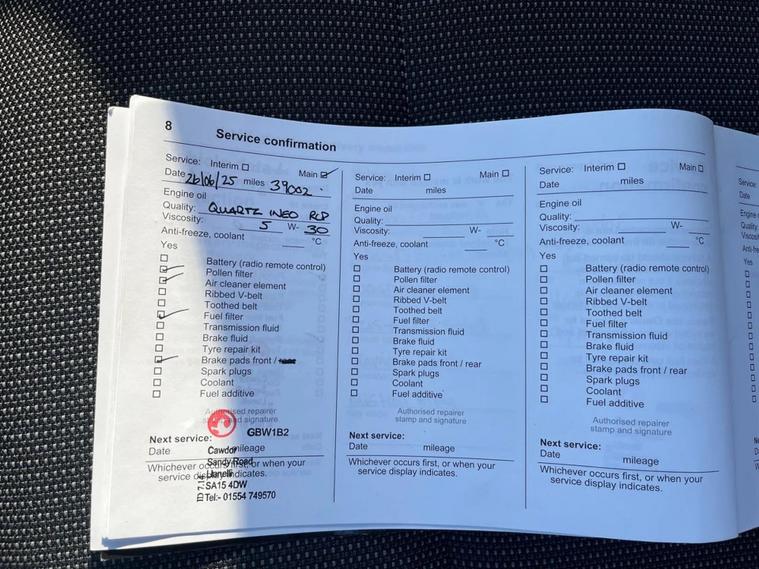 8
Service confirmation
Service: Interim ☐ Main ☑
Date 26/06/25 miles 39002
Engine oil
Quality: QUARTZ INEO RCP
Viscosity: 5 W- 30
Anti-freeze, coolant °C
Yes
☐ Battery (radio remote control)
☑ Pollen filter
☑ Air cleaner element
☐ Ribbed V-belt
☐ Toothed belt
☑ Fuel filter
☐ Transmission fluid
☐ Brake fluid
☐ Tyre repair kit
☑ Brake pads front /
☐ Spark plugs
☐ Coolant
☐ Fuel additive
Authorised repairer
stamp and signature
GBW1B2
Next service:
Date mileage
Cawdor
Whichever occurs first, or when your
service display indicates.
Sandy Road
Llanelli
SA15 4DW
Tel:- 01554 749570
Service: Interim ☐ Main ☐
Date miles
Engine oil
Quality:
Viscosity: W-
Anti-freeze, coolant °C
Yes
☐ Battery (radio remote control)
☐ Pollen filter
☐ Air cleaner element
☐ Ribbed V-belt
☐ Toothed belt
☐ Fuel filter
☐ Transmission fluid
☐ Brake fluid
☐ Tyre repair kit
☐ Brake pads front / rear
☐ Spark plugs
☐ Coolant
☐ Fuel additive
Authorised repairer
stamp and signature
Next service:
Date mileage
Whichever occurs first, or when your
service display indicates.
Service: Interim ☐ Main ☐
Date miles
Engine oil
Quality:
Viscosity: W-
Anti-freeze, coolant °C
Yes
☐ Battery (radio remote control)
☐ Pollen filter
☐ Air cleaner element
☐ Ribbed V-belt
☐ Toothed belt
☐ Fuel filter
☐ Transmission fluid
☐ Brake fluid
☐ Tyre repair kit
☐ Brake pads front / rear
☐ Spark plugs
☐ Coolant
☐ Fuel additive
Authorised repairer
stamp and signature
Next service:
Date mileage
Whichever occurs first, or when your
service display indicates.